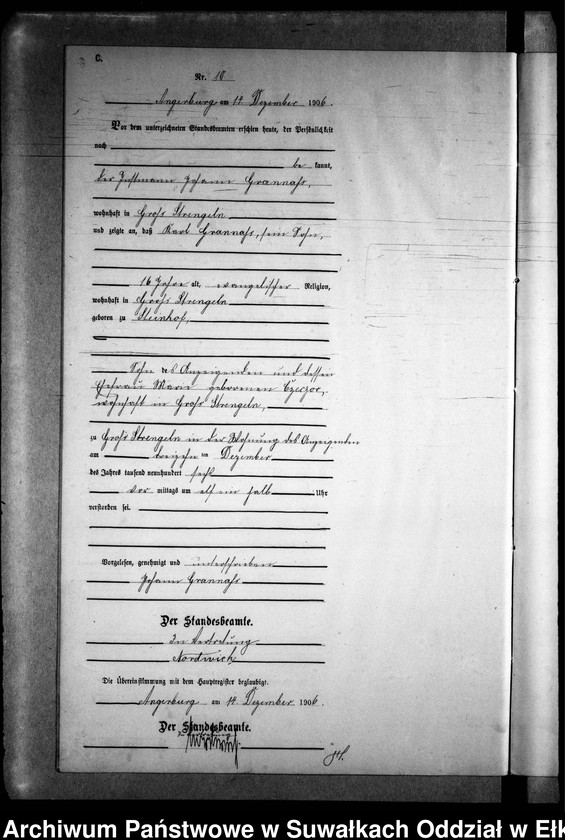 C.
Nr. 18
Angerburg am 14 Dezember 1906.
Vor dem unterzeichneten Standesbeamten erschien heute, der Persönlichkeit
nach
be kannt,
der Instmann Johann Grannass,
wohnhaft in Gross Strengeln
und zeigte an, daß Karl Grannass, sein Sohn,
16 Jahre alt, evangelischer Religion,
wohnhaft in Gross Strengeln
geboren zu Steinhof,
Sohn des Anzeigenden und dessen
Ehefrau Marie geborenen Czeczor,
wohnhaft in Gross Strengeln,
zu Gross Strengeln in der Wohnung des Anzeigenden
am dreizehn ten Dezember
des Jahres tausend neunhundert sechs
vor mittags um elf ein halb Uhr
verstorben sei.
Vorgelesen, genehmigt und unterschrieben
Johann Grannass
Der Standesbeamte.
In Vertretung
Nordwich
Die Übereinstimmung mit dem Hauptregister beglaubigt.
Angerburg am 14 Dezember 1906.
Der Standesbeamte.
Archiwum Państwowe w Suwałkach Oddział w Ełk